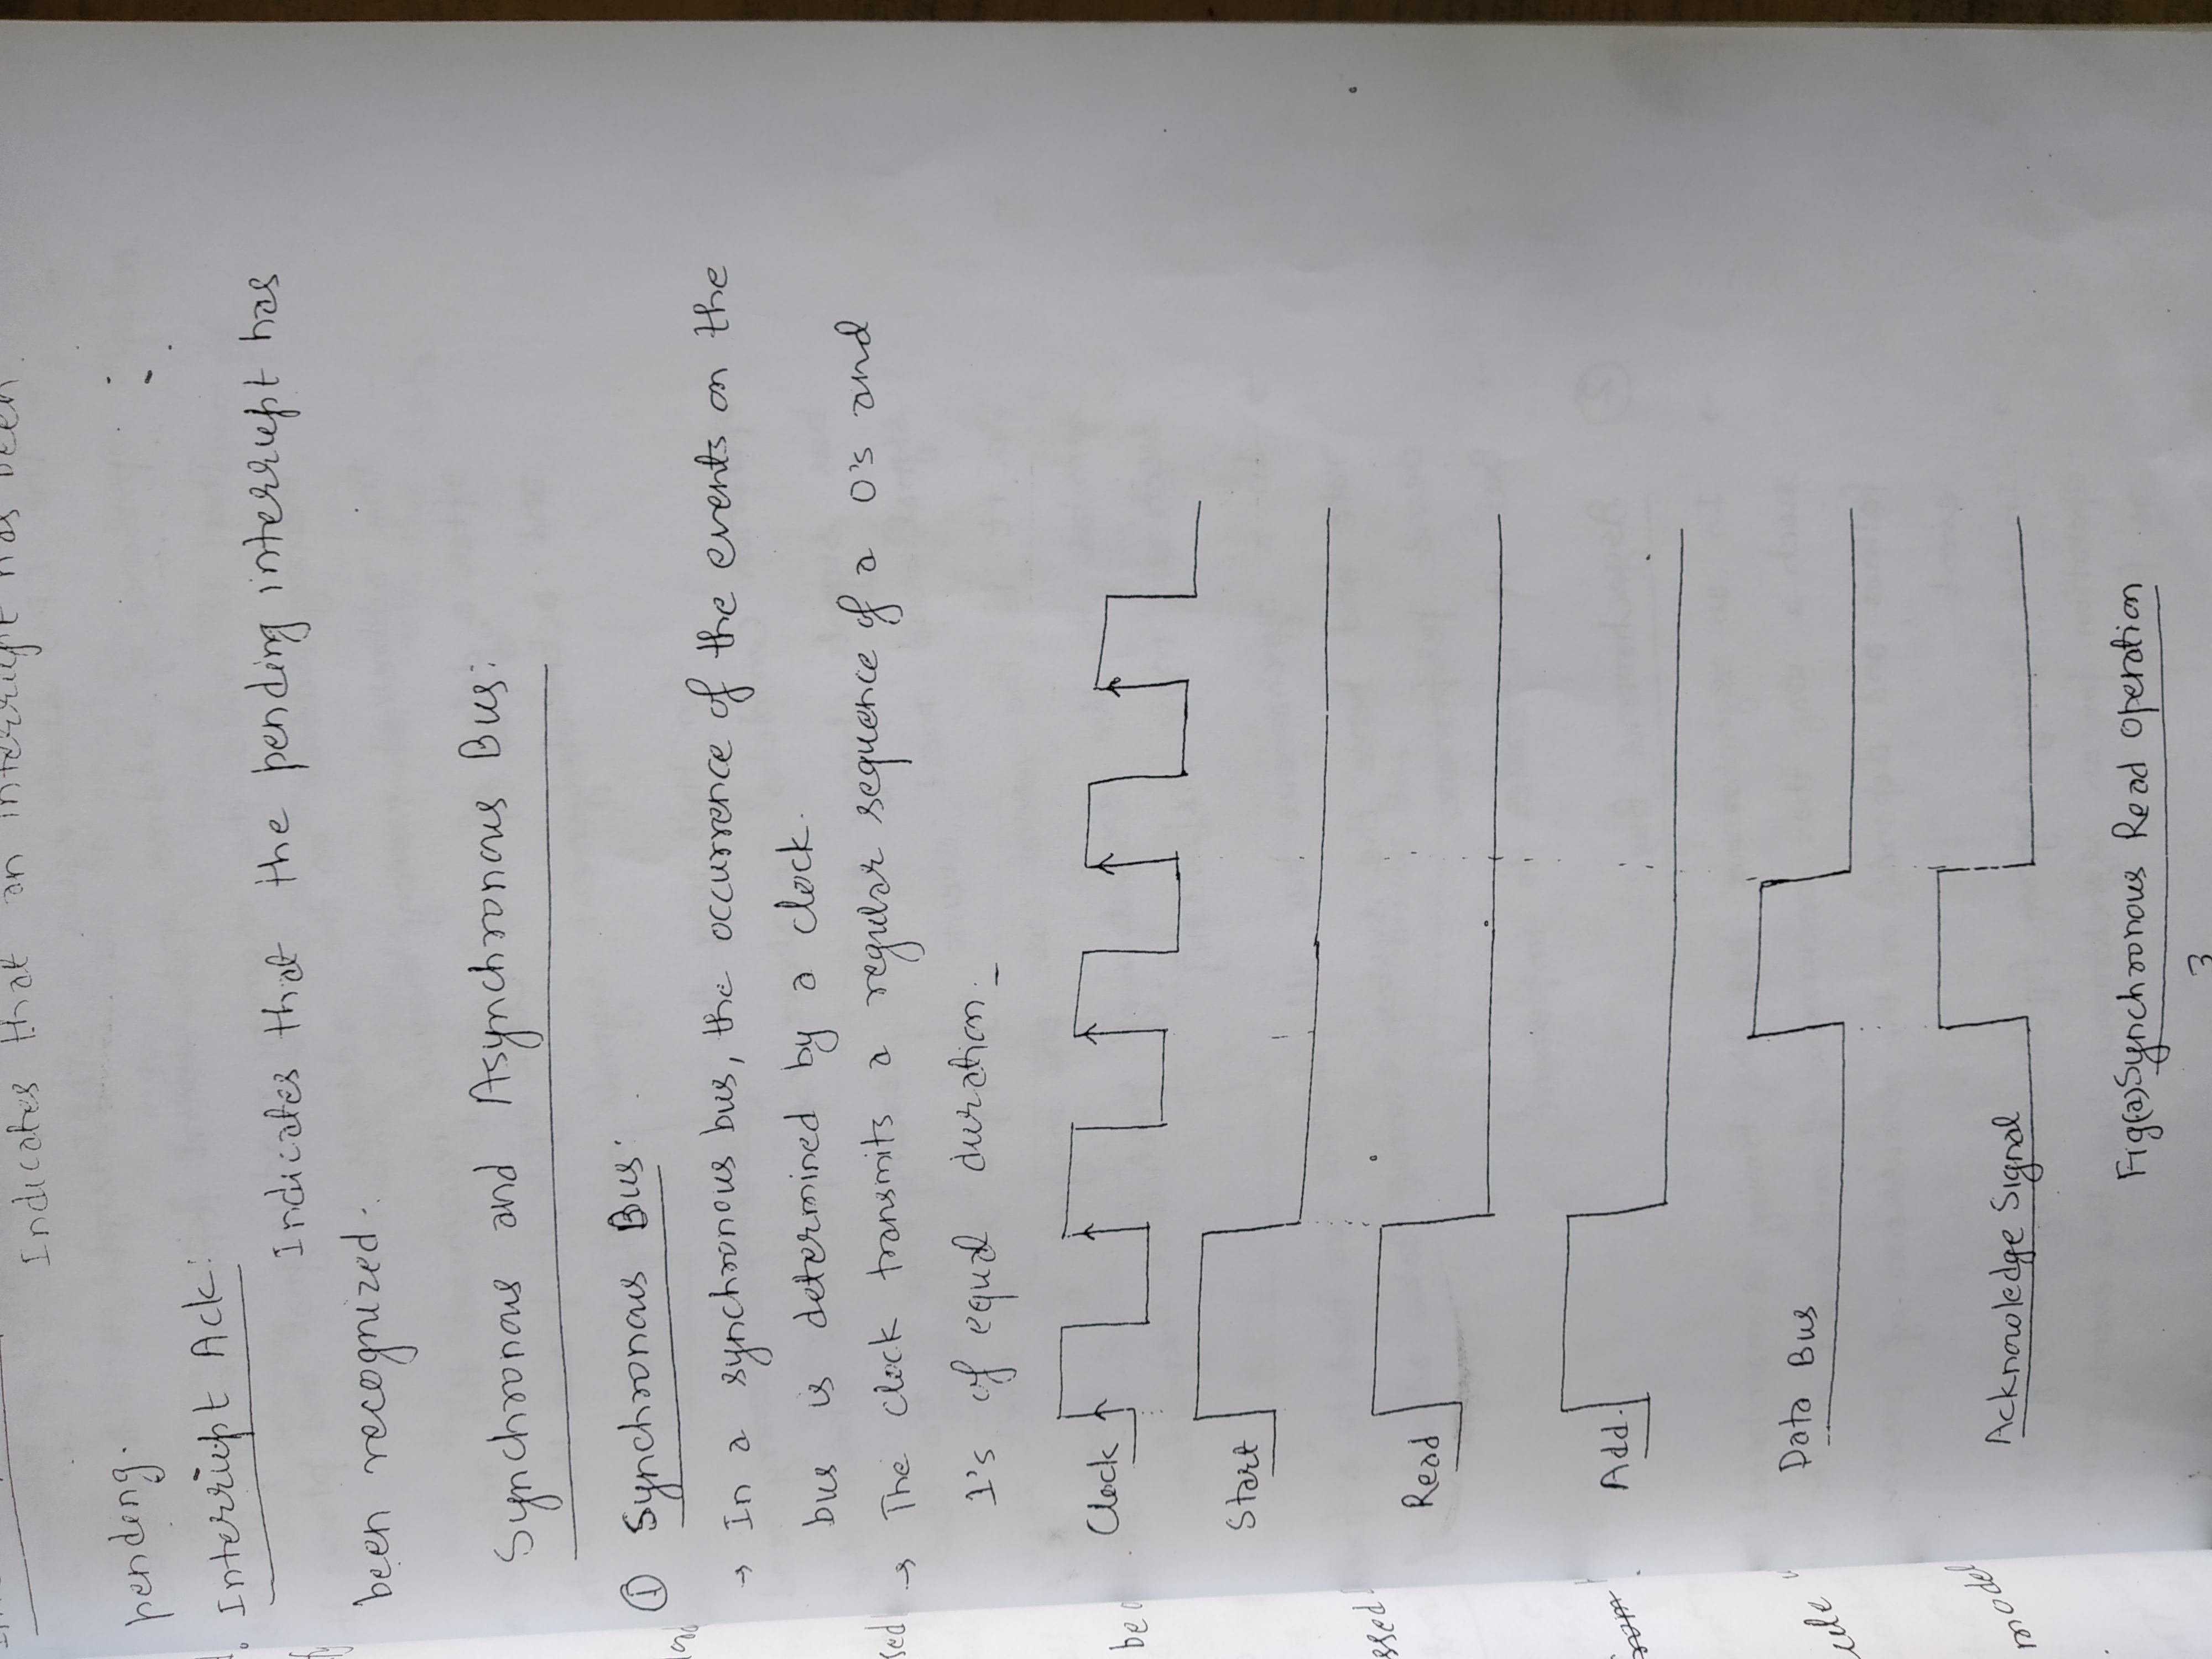 Indicates that an interrupt has been
pending.
Interrupt Ack:
Indicates that the pending interrupt has
been recognized.
Synchronous and Asynchronous Bus:
① Synchronous Bus:
→ In a synchronous bus, the occurrence of the events on the
bus is determined by a clock.
→ The clock transmits a regular sequence of a 0's and
1's of equal duration.
Clock
Start
Read
Add.
Data Bus
Acknowledge Signal
Fig(a) Synchronous Read operation
3